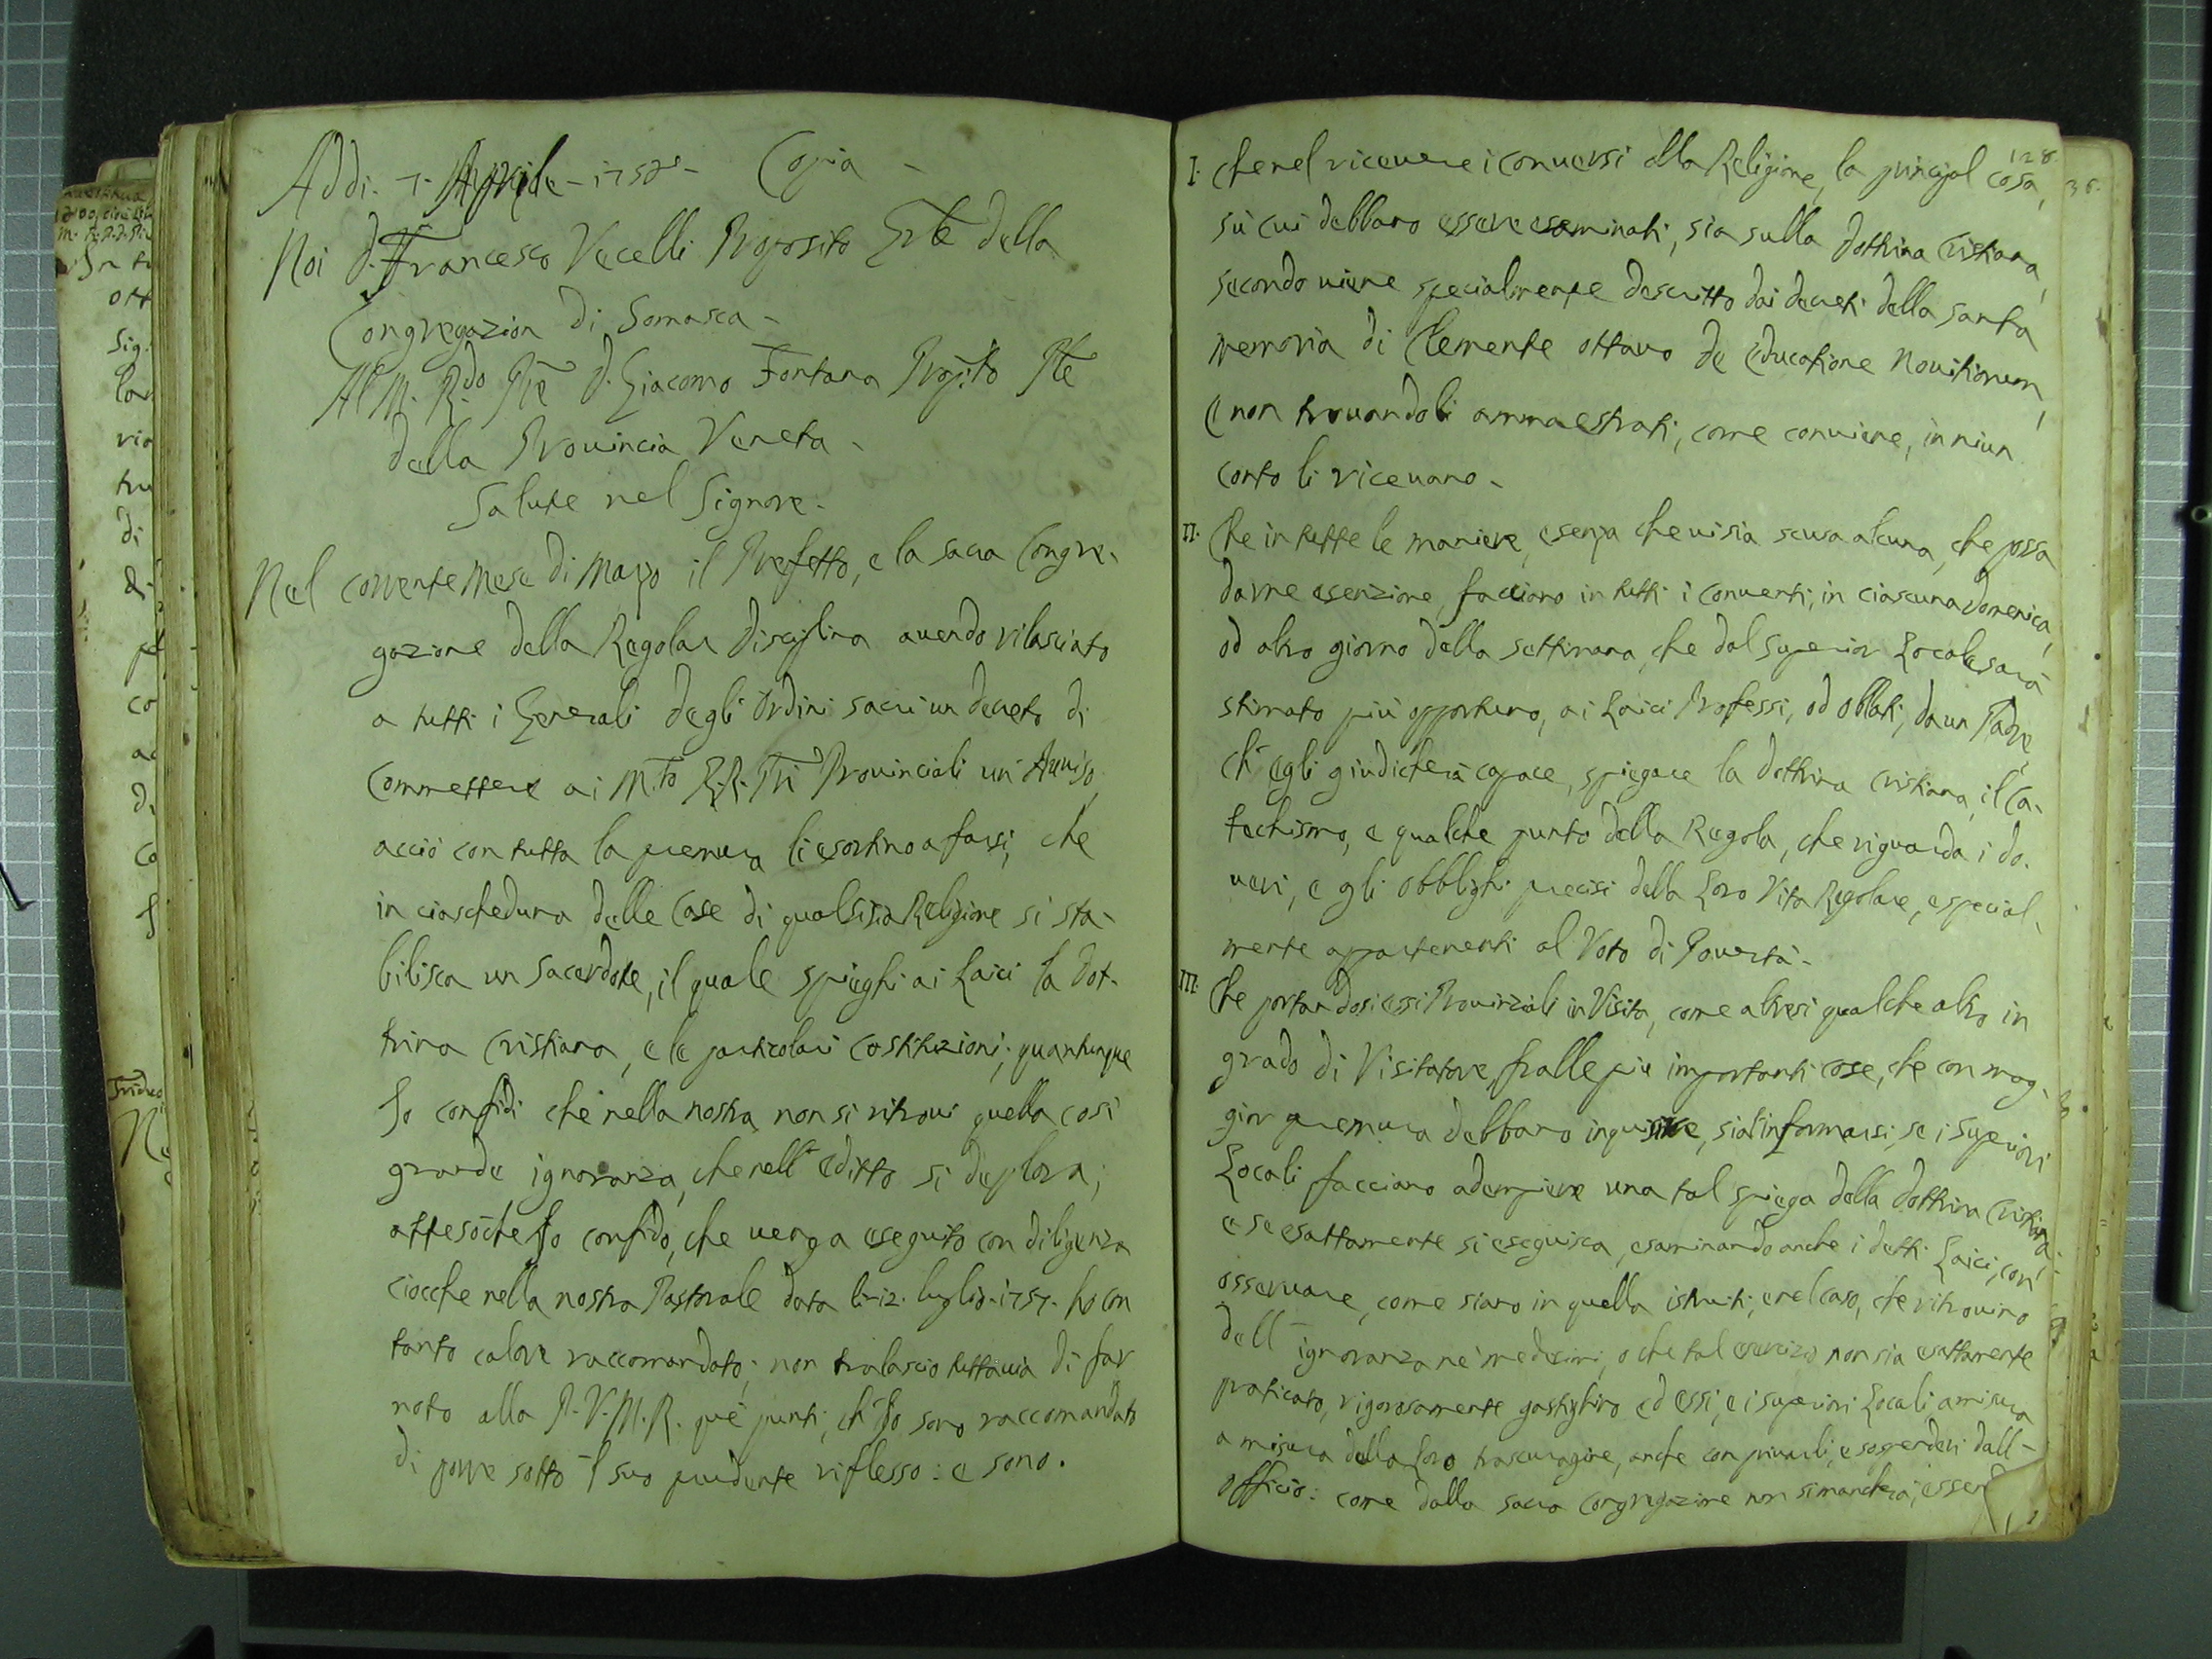 Addi. 7. Aprile - 1758 - Copia -
Noi D. Francesco Vecelli Proposito Gñle della
Congregazion di Somasca -
Al M. R.do Pre D. Giacomo Fontana Prop.to Ple
della Prouincia Veneta -
Salute nel Signore -
Nel corrente mese di Marzo il Prefetto, e la sacra Congre-
gazione della Regolar Disciplina auendo rilasciato
a tutti i Generali degli Ordini sacri un decreto di
commettere ai M.to R.R. Pri Prouinciali un' Auuiso,
acciò con tutta la premura li esortino a farsi, che
in ciascheduna delle Case di qualsisia Religione si sta-
bilisca un Sacerdote, il quale spieghi ai Laici la Dot-
trina Cristiana, e le particolari Costituzioni; quantunque
Io confidi che nella nostra non si ritroui quella così
grande ignoranza, che nell' editto si deplora;
attesoche Io confido, che uenga eseguito con diligenza
ciocche nella nostra Pastorale data li 12. luglio 1757. ho con
tanto calore raccomandato; non tralascio tuttauia di far
noto alla P. V. M. R. que' punti, ch' Io sono raccomandato
di porre sotto 'l suo prudente riflesso: e sono.
128.
I. Che nel riceuere i Conuersi alla Religione, la principal cosa,
sù cui debbano essere esaminati, sia sulla Dottrina Cristiana,
secondo uiene specialmente descritto dai decreti della santa
memoria di Clemente ottauo de Educatione Nouitiorum,
e non trouandoli ammaestrati, come conuiene, in niun
conto li riceuano -
II. Che in tutte le maniere, e senza che ui sia scusa alcuna, che possa
darne esenzione, facciano in tutti i Conuenti, in ciascuna Domenica,
od altro giorno della settimana, che dal Superior Locale sarà
stimato più opportuno, ai Laici Professi, od Oblati, da un Padre,
ch' egli giudicherà capace, spiegare la Dottrina Cristiana, il Ca-
techismo, e qualche punto della Regola, che riguarda i do-
ueri, e gli obblighi precisi della Loro Vita Regolare, e special-
mente appartenenti al Voto di Pouertà -
III. Che portandosi essi Prouinziali in Visita, come altresì qualche altro in
grado di Visitatore, fralle più importanti cose, che con mag-
gior premura debbano inquisire, sia l'informarsi, se i Superiori
Locali facciano adempiere una tal spiega della Dottrina Cristiana,
e se esattamente si eseguisca, esaminando anche i detti Laici, con
osseruare, come siano in quella istruiti; e nel caso, che ritrouino
dell' ignoranza ne' medesimi, o che tal esercizio non sia esattamente
praticato, rigorosamente gastighino ed essi, e i Superiori Locali, a misura
a misura della Loro trascuragine, anche con priuarli, e sospenderli dall'
officio: come dalla sacra Congregazione non si mancherà,